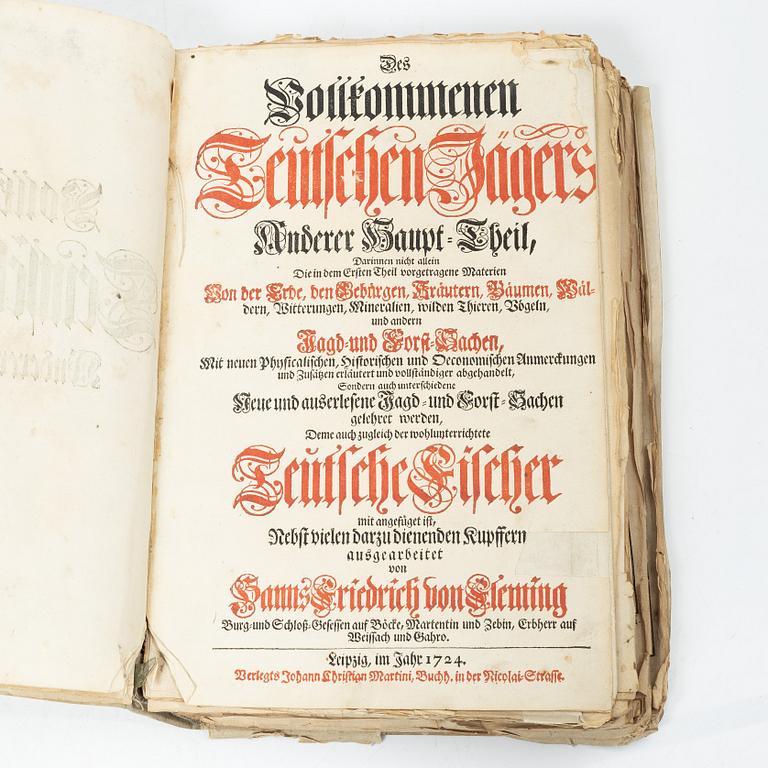 Des
Vollkommenen
Teutschen Jägers
Anderer Haupt-Theil,
Darinnen nicht allein
Die in dem Ersten Theil vorgetragene Materien
Von der Erde, den Gebürgen, Kräutern, Bäumen, Wäl-
dern, Witterungen, Mineralien, wilden Thieren, Vögeln,
und andern
Jagd-und Forst-Sachen,
Mit neuen Physicalischen, Historischen und Oeconomischen Anmerckungen
und Zusätzen erläutert und vollständiger abgehandelt,
Sondern auch unterschiedene
Neue und auserlesene Jagd-und Forst-Sachen
gelehret werden,
Deme auch zugleich der wohlunterrichtete
Teutsche Fischer
mit angefüget ist,
Nebst vielen darzu dienenden Kupffern
ausgearbeitet
von
Hanns Friedrich von Fleming
Burg-und Schloß-Gesessen auf Böcke, Martentin und Zebin, Erbherr auf
Weissach und Gahro.
Leipzig, im Jahr 1724.
Verlegts Johann Christian Martini, Buchh. in der Nicolai-Strasse.